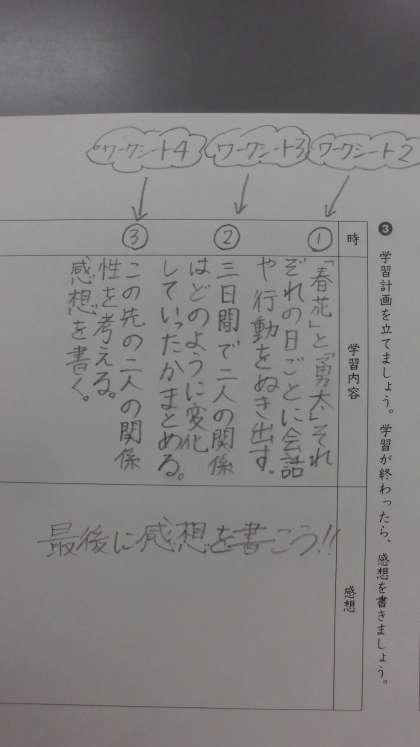 ❸ 学習計画を立てましょう。学習が終わったら、感想を書きましょう。
時
学習内容
感想
ワークシート2
①
「春花」と「勇太」それ
ぞれの日ごとに会話
や行動をぬき出す。
ワークシート3
②
三日間で二人の関係
はどのように変化
していったかまとめる。
ワークシート4
③
この先の二人の関係
性を考える。
感想を書く。
最後に感想を書こう!!